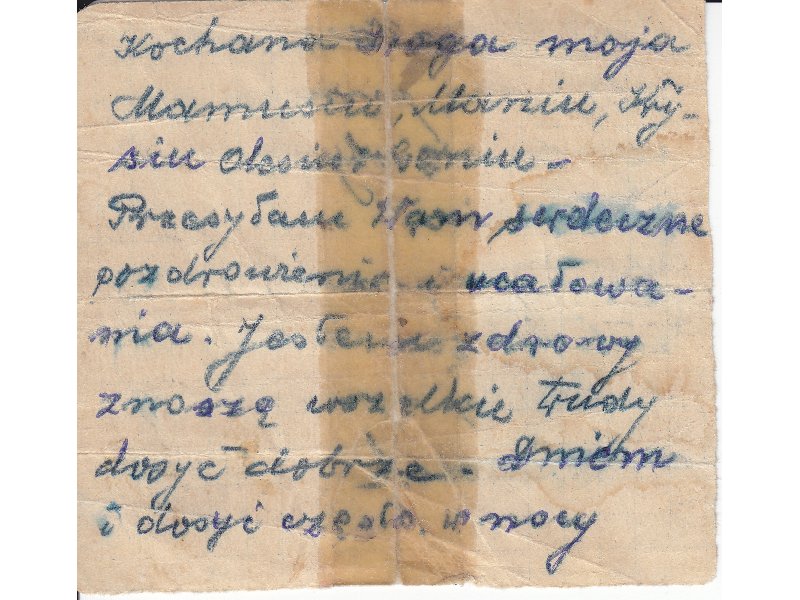 Kochana Droga moja
Mamusiu, Maniu, Kry-
siu
Przesyłam Wam serdeczne
pozdrowienia i ucałowa-
nia. Jestem zdrowy
znoszę wszelkie trudy
dosyć dobrze. Dniem
i dosyć często w nocy